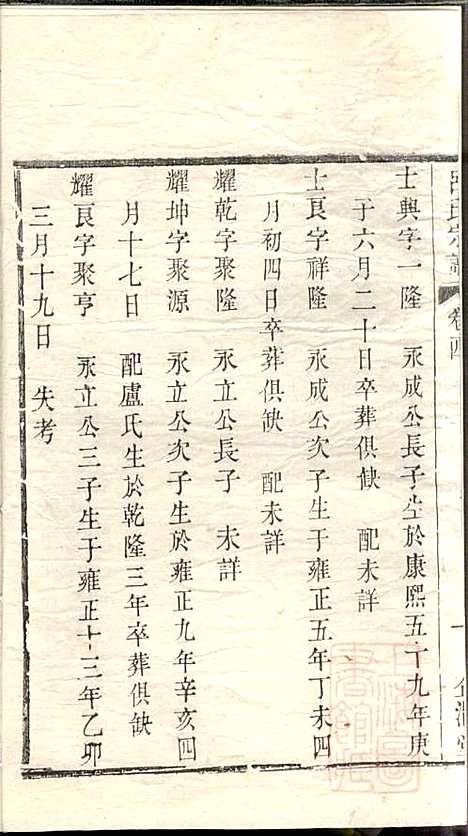 氏宗譜 卷四
士興字一隆 永成公長子生於康熙五十九年庚
于六月二十日卒葬俱缺 配未詳
士良字祥隆 永成公次子生于雍正五年丁未四
月初四日卒葬俱缺 配未詳
耀乾字聚隆 永立公長子 未詳
耀坤字聚源 永立公次子生於雍正九年辛亥四
月十七日 配盧氏生於乾隆三年卒葬俱缺
耀良字聚亨 永立公三子生于雍正十三年乙卯
三月十九日 失考